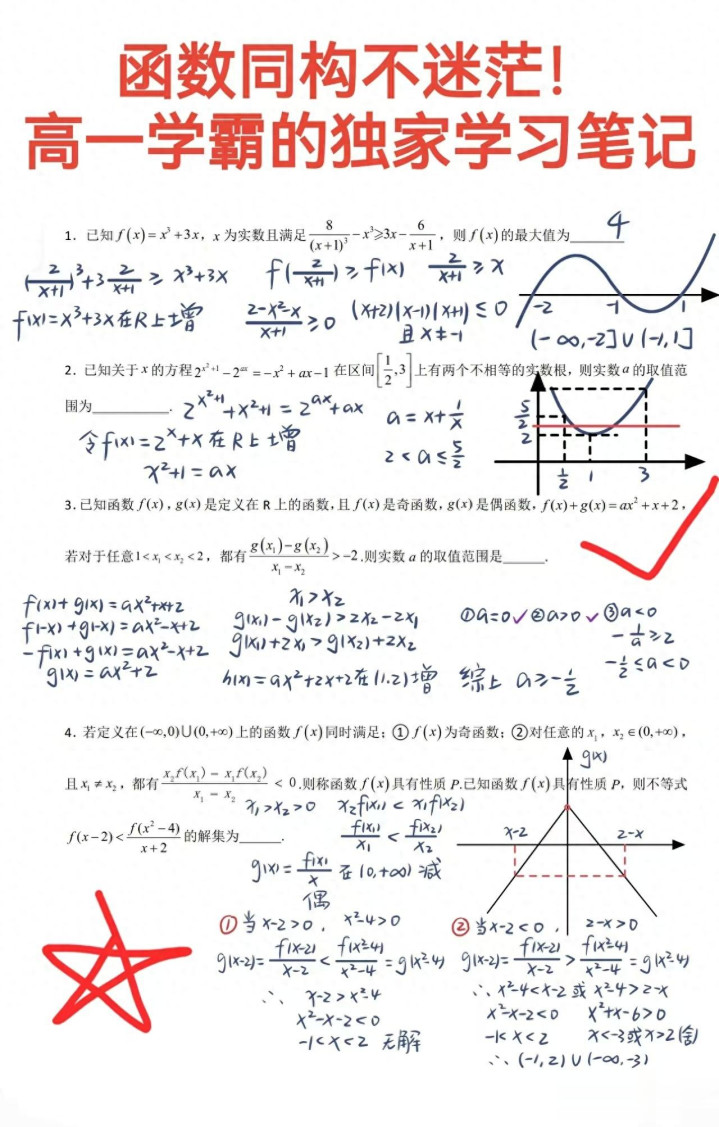 函数同构不迷茫!
高一学霸的独家学习笔记
1. 已知 f(x)=x³+3x, x 为实数且满足 8/(x+1)³-x³⩾3x-6/(x+1), 则 f(x) 的最大值为______ 4
(2/(x+1))³+3·2/(x+1) ≥ x³+3x f(2/(x+1)) ≥ f(x) 2/(x+1) ≥ x
f(x)=x³+3x在R上增 (2-x²-x)/(x+1) ≥0 (x+2)(x-1)(x+1) ≤ 0
且 x≠-1
-2 -1 1
(-∞,-2]∪(-1,1]
2. 已知关于 x 的方程 2^(x²+1)-2^(ax)=-x²+ax-1 在区间 [1/2,3] 上有两个不相等的实数根, 则实数 a 的取值范
围为______.
2^(x²+1)+x²+1 = 2^(ax)+ax a = x+1/x
令f(x)=2^x+x在R上增 2<a≤5/2
x²+1=ax
5/2
2
1/2 1 3
3. 已知函数 f(x), g(x) 是定义在 R 上的函数, 且 f(x) 是奇函数, g(x) 是偶函数, f(x)+g(x)=ax²+x+2,
若对于任意 1<x₁<x₂<2, 都有 (g(x₁)-g(x₂))/(x₁-x₂)>-2.则实数 a 的取值范围是______.
f(x)+g(x)=ax²+x+2
f(-x)+g(-x)=ax²-x+2
-f(x)+g(x)=ax²-x+2
g(x)=ax²+2
x₁>x₂
g(x₁)-g(x₂)>2x₂-2x₁
g(x₁)+2x₁>g(x₂)+2x₂
h(x)=ax²+2x+2在(1,2)增
①a=0✓ ②a>0 ✓ ③a<0
-1/a≥2
-1/2≤a<0
综上 a≥-1/2
4. 若定义在 (-∞,0)∪(0,+∞) 上的函数 f(x) 同时满足: ① f(x) 为奇函数; ②对任意的 x₁, x₂∈(0,+∞),
且 x₁≠x₂, 都有 (x₂f(x₁)-x₁f(x₂))/(x₁-x₂)<0.则称函数 f(x) 具有性质 P.已知函数 f(x) 具有性质 P, 则不等式
f(x-2)<f(x²-4)/(x+2) 的解集为______.
x₁>x₂>0 x₂f(x₁)<x₁f(x₂)
f(x₁)/x₁ < f(x₂)/x₂
g(x)=f(x)/x 在(0,+∞)减
偶
g(x)
x-2 2-x
①当x-2>0, x²-4>0
g(x-2)=f(x-2)/(x-2) < f(x²-4)/(x²-4)=g(x²-4)
∴ x-2>x²-4
x²-x-2<0
-1<x<2 无解
②当x-2<0, 2-x>0
g(x-2)=f(x-2)/(x-2) > f(x²-4)/(x²-4)=g(x²-4)
∴x²-4<x-2 或 x²-4>2-x
x²-x-2<0 x²+x-6>0
-1<x<2 x<-3或x>2(舍)
∴(-1,2)∪(-∞,-3)